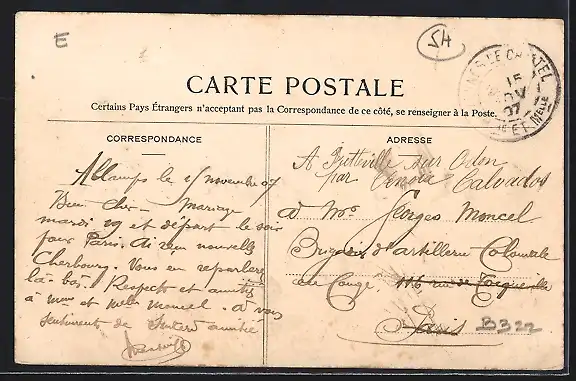 E
SH
CARTE POSTALE
Certains Pays Étrangers n'acceptant pas la Correspondance de ce côté, se renseigner à la Poste.
CORRESPONDANCE
ADRESSE
15
07
ET MELLE
Allamps le 15 novembre 07
Bien cher - Mariage
mardi 19 et départ le soir
pour Paris. Ai reçu nouvelles
Cherbourg. Vous en reparlerai
là-bas. Respects et amitiés
à mme et melle moncel. à vous
sentiments de sincère amitié
A Bretteville sur Odon
par Calvados
à Mr Georges Moncel
Brigadier d'artillerie Coloniale
en Congé, 116 rue de Tocqueville
Paris
B322